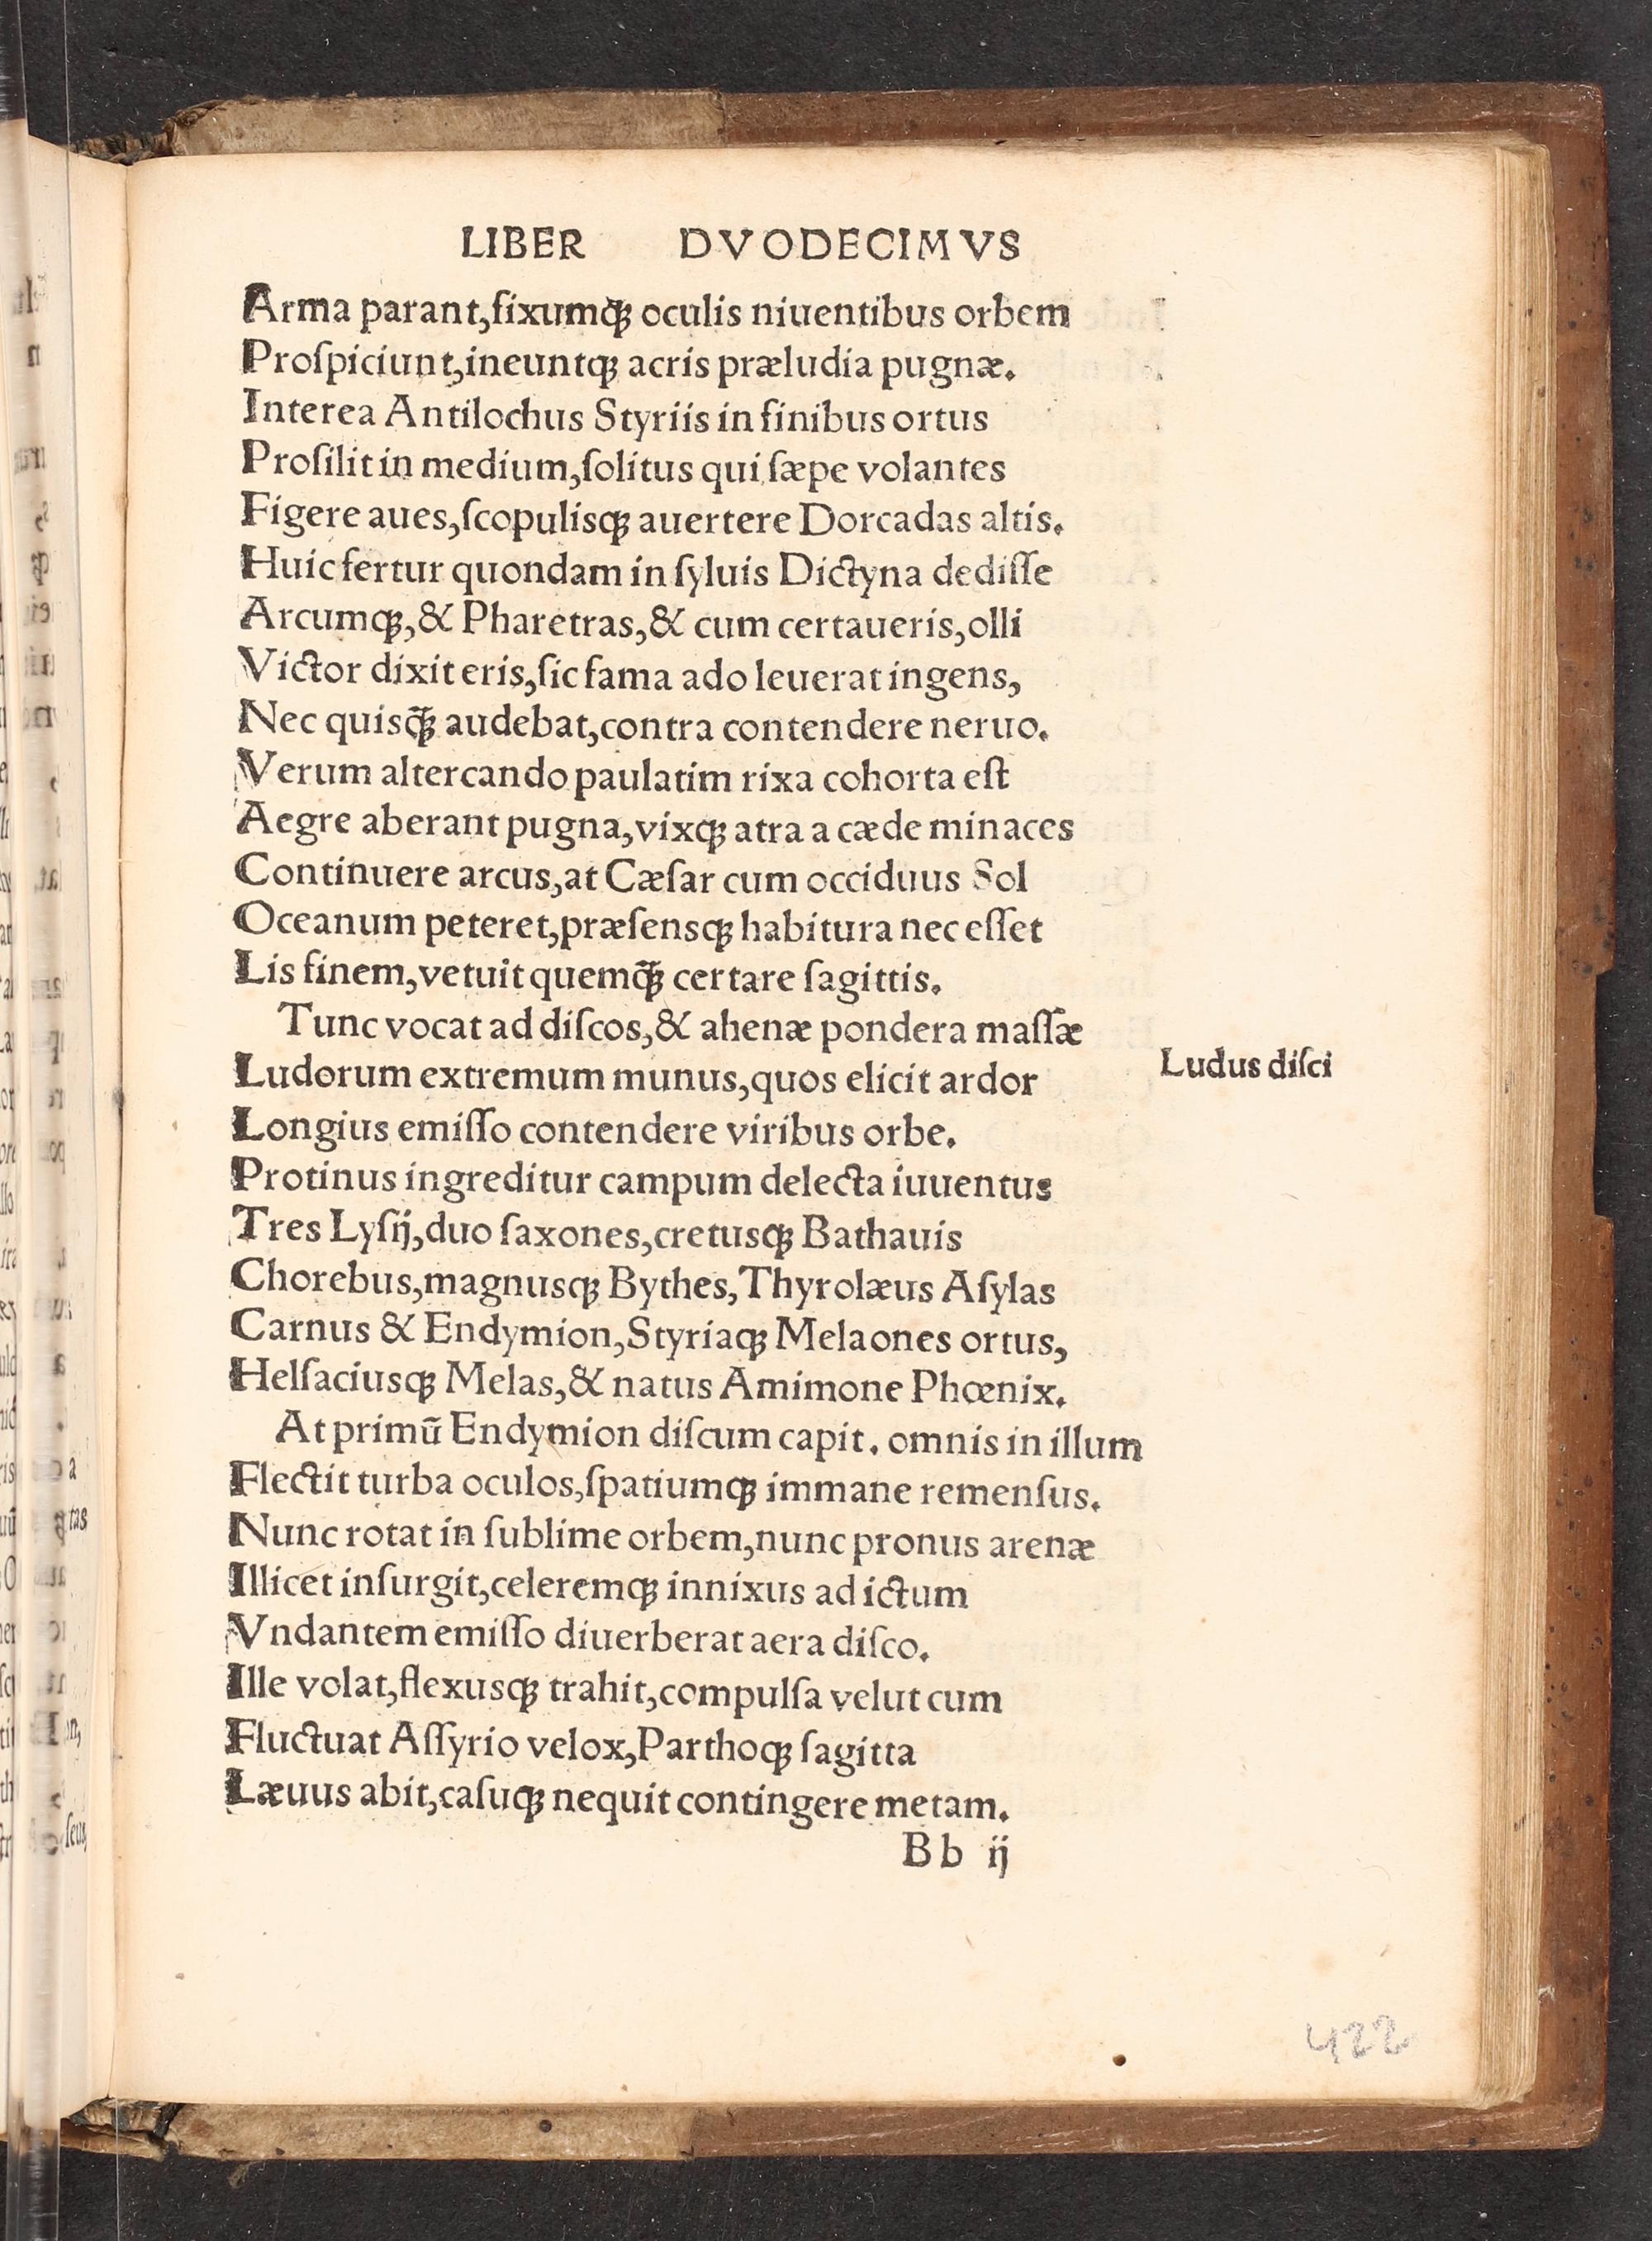 LIBER DVODECIMVS
Arma parant,fixumqꝫ oculis niuentibus orbem
Proſpiciunt,ineuntqꝫ acris præludia pugnæ.
Interea Antilochus Styriis in finibus ortus
Proſilit in medium,ſolitus qui ſæpe volantes
Figere aues,ſcopulisqꝫ auertere Dorcadas altis.
Huic fertur quondam in ſyluis Dictyna dediſſe
Arcumqꝫ,& Pharetras,& cum certaueris,olli
Victor dixit eris,ſic fama ado leuerat ingens,
Nec quisq̄ꝫ audebat,contra contendere neruo.
Verum altercando paulatim rixa cohorta eſt
Aegre aberant pugna,vixqꝫ atra a cæde minaces
Continuere arcus,at Cæſar cum occiduus Sol
Oceanum peteret,præſensqꝫ habitura nec eſſet
Lis finem,vetuit quemq̄ꝫ certare ſagittis.
Tunc vocat ad diſcos,& ahenæ pondera maſſæ
Ludus diſci
Ludorum extremum munus,quos elicit ardor
Longius emiſſo contendere viribus orbe.
Protinus ingreditur campum delecta iuuentus
Tres Lyſij,duo ſaxones,cretusqꝫ Bathauis
Chorebus,magnusqꝫ Bythes,Thyrolæus Aſylas
Carnus & Endymion,Styriaqꝫ Melaones ortus,
Helſaciusqꝫ Melas,& natus Amimone Phœnix.
At primū Endymion diſcum capit. omnis in illum
Flectit turba oculos,ſpatiumqꝫ immane remenſus.
Nunc rotat in ſublime orbem,nunc pronus arenæ
Illicet inſurgit,celeremqꝫ innixus ad ictum
Vndantem emiſſo diuerberat aera diſco.
Ille volat,flexusqꝫ trahit,compulſa velut cum
Fluctuat Aſſyrio velox,Parthoqꝫ ſagitta
Læuus abit,caſuqꝫ nequit contingere metam.
Bb ij
422